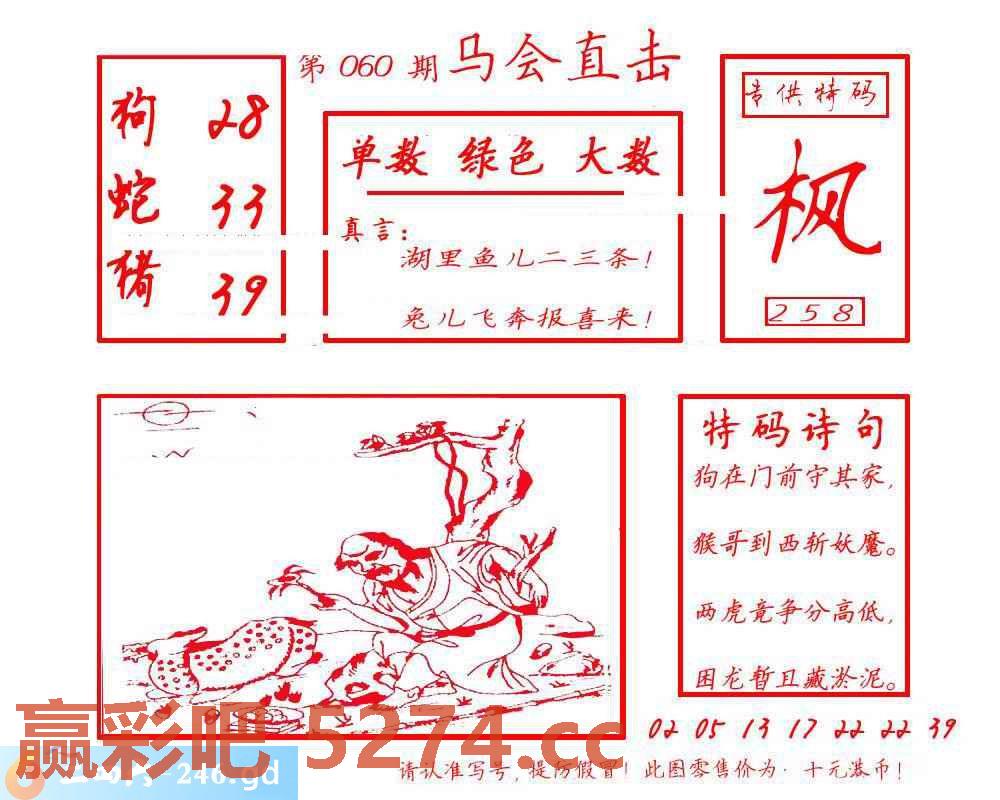 第 060 期 马会直击
狗 28
蛇 33
猪 39
单数 绿色 大数
真言:
湖里鱼儿二三条!
兔儿飞奔报喜来!
专供特码
枫
258
特码诗句
狗在门前守其家,
猴哥到西斩妖魔。
两虎竟争分高低,
困龙暂且藏淤泥。
02 05 13 17 22 22 39
赢彩吧 5274.cc
-246.gd
请认准写号,提防假冒!此图零售价为·十元港币!